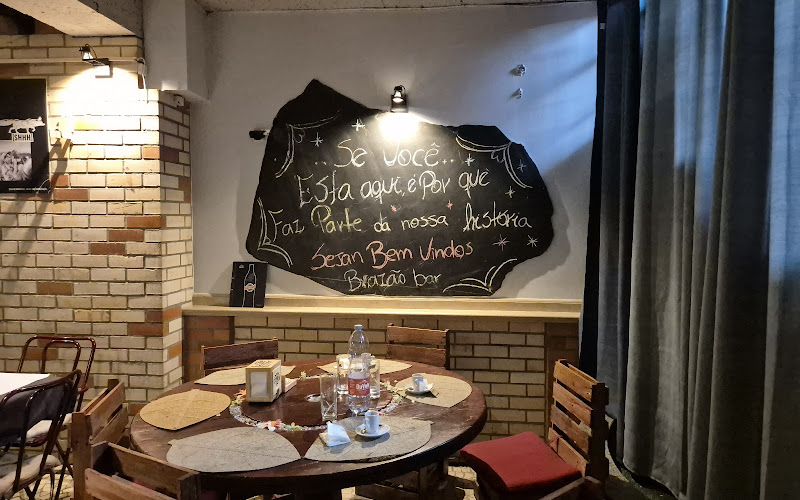 SHHH!
..Se você..
Esta aqui, é Por que
Faz Parte da nossa história
Sejan Bem Vindos
Brazão bar